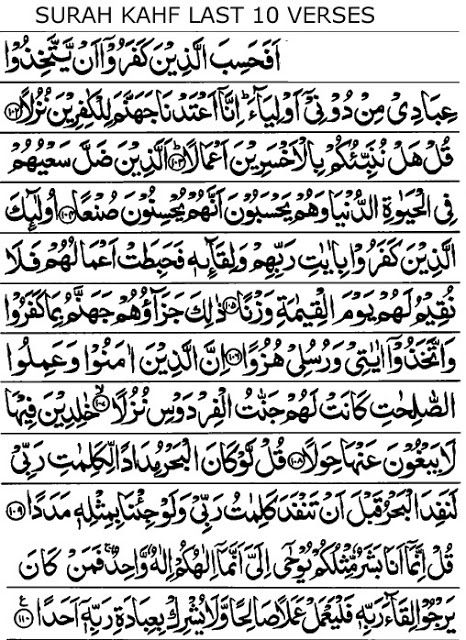 SURAH KAHF LAST 10 VERSES
اَفَحَسِبَ الَّذِيْنَ كَفَرُوْۤا اَنْ يَّتَّخِذُوْا
عِبَادِيْ مِنْ دُوْنِيْۤ اَوْلِيَآءَ ؕ اِنَّاۤ اَعْتَدْنَا جَهَنَّمَ لِلْكٰفِرِيْنَ نُزُلًا ۝۱۰۲
قُلْ هَلْ نُنَبِّئُكُمْ بِالْاَخْسَرِيْنَ اَعْمَالًا ؕ۝۱۰۳ اَلَّذِيْنَ ضَلَّ سَعْيُهُمْ
فِي الْحَيٰوةِ الدُّنْيَا وَهُمْ يَحْسَبُوْنَ اَنَّهُمْ يُحْسِنُوْنَ صُنْعًا ۝۱۰۴ اُولٰٓئِكَ
الَّذِيْنَ كَفَرُوْا بِاٰيٰتِ رَبِّهِمْ وَلِقَآئِهٖ فَحَبِطَتْ اَعْمَالُهُمْ فَلَا
نُقِيْمُ لَهُمْ يَوْمَ الْقِيٰمَةِ وَزْنًا ۝۱۰۵ ذٰلِكَ جَزَآؤُهُمْ جَهَنَّمُ بِمَا كَفَرُوْا
وَاتَّخَذُوْۤا اٰيٰتِيْ وَرُسُلِيْ هُزُوًا ۝۱۰۶ اِنَّ الَّذِيْنَ اٰمَنُوْا وَعَمِلُوا
الصّٰلِحٰتِ كَانَتْ لَهُمْ جَنّٰتُ الْفِرْدَوْسِ نُزُلًا ۙ۝۱۰۷ خٰلِدِيْنَ فِيْهَا
لَا يَبْغُوْنَ عَنْهَا حِوَلًا ۝۱۰۸ قُلْ لَّوْ كَانَ الْبَحْرُ مِدَادًا لِّكَلِمٰتِ رَبِّيْ
لَنَفِدَ الْبَحْرُ قَبْلَ اَنْ تَنْفَدَ كَلِمٰتُ رَبِّيْ وَلَوْ جِئْنَا بِمِثْلِهٖ مَدَدًا ۝۱۰۹
قُلْ اِنَّمَاۤ اَنَا بَشَرٌ مِّثْلُكُمْ يُوْحٰۤى اِلَيَّ اَنَّمَاۤ اِلٰهُكُمْ اِلٰهٌ وَّاحِدٌ ۚ فَمَنْ كَانَ
يَرْجُوْا لِقَآءَ رَبِّهٖ فَلْيَعْمَلْ عَمَلًا صَالِحًا وَّلَا يُشْرِكْ بِعِبَادَةِ رَبِّهٖۤ اَحَدًا ۝۱۱۰ ع